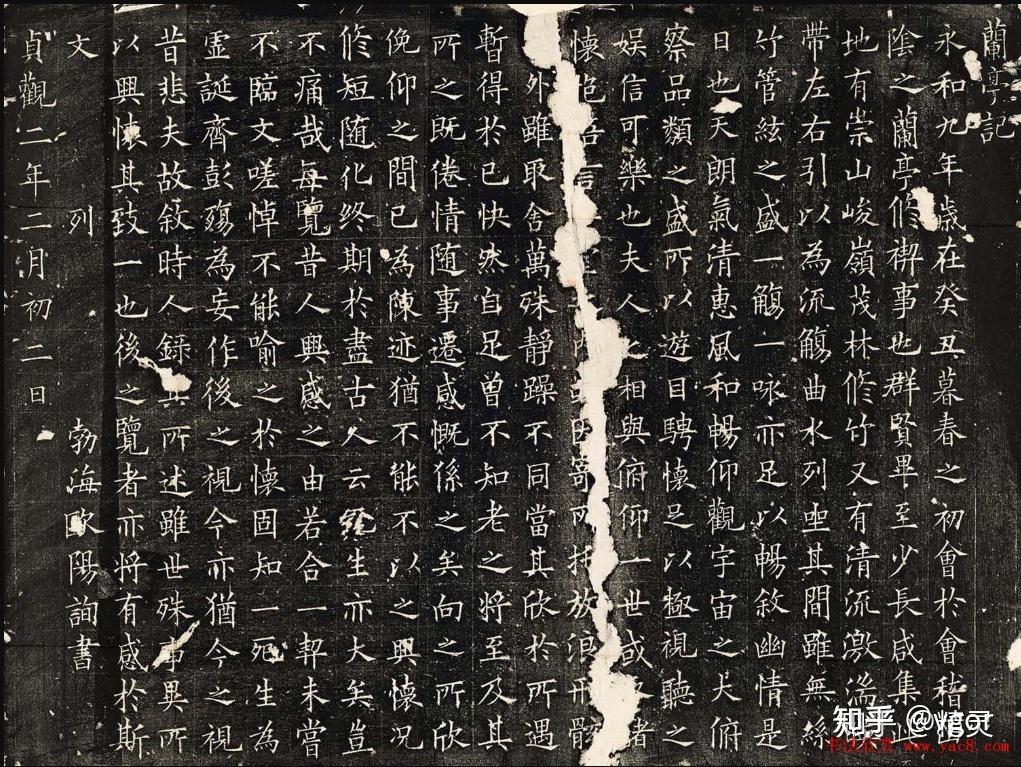 蘭亭記
永和九年歲在癸丑暮春之初會於會稽
陰之蘭亭修禊事也群賢畢至少長咸集此
地有崇山峻嶺茂林修竹又有清流激湍
帶左右引以為流觴曲水列坐其間雖無絲
竹管絃之盛一觴一咏亦足以暢敘幽情是
日也天朗氣清惠風和暢仰觀宇宙之大俯
察品類之盛所以遊目騁懷足以極視聽之
娛信可樂也夫人之相與俯仰一世或諸
懷抱言內因寄所托放浪形骸
外雖取舍萬殊靜躁不同當其欣於所遇
暫得於己快然自足曾不知老之將至及其
所之既倦情随事遷感慨係之矣向之所欣
俛仰之間已為陳迹猶不能不以之興懷況
修短随化终期於盡古人云死生亦大矣豈
不痛哉每覽昔人興感之由若合一契未嘗
不臨文嗟悼不能喻之於懷固知一死生為
虛誕齊彭殤為妄作後之視今亦猶今之視
昔悲夫故敘時人録其所述雖世殊事異所
以興懷其致一也後之覽者亦將有感於斯
文 列 勃海歐陽詢書
貞觀二年二月初二日
知乎
www.yac8.com